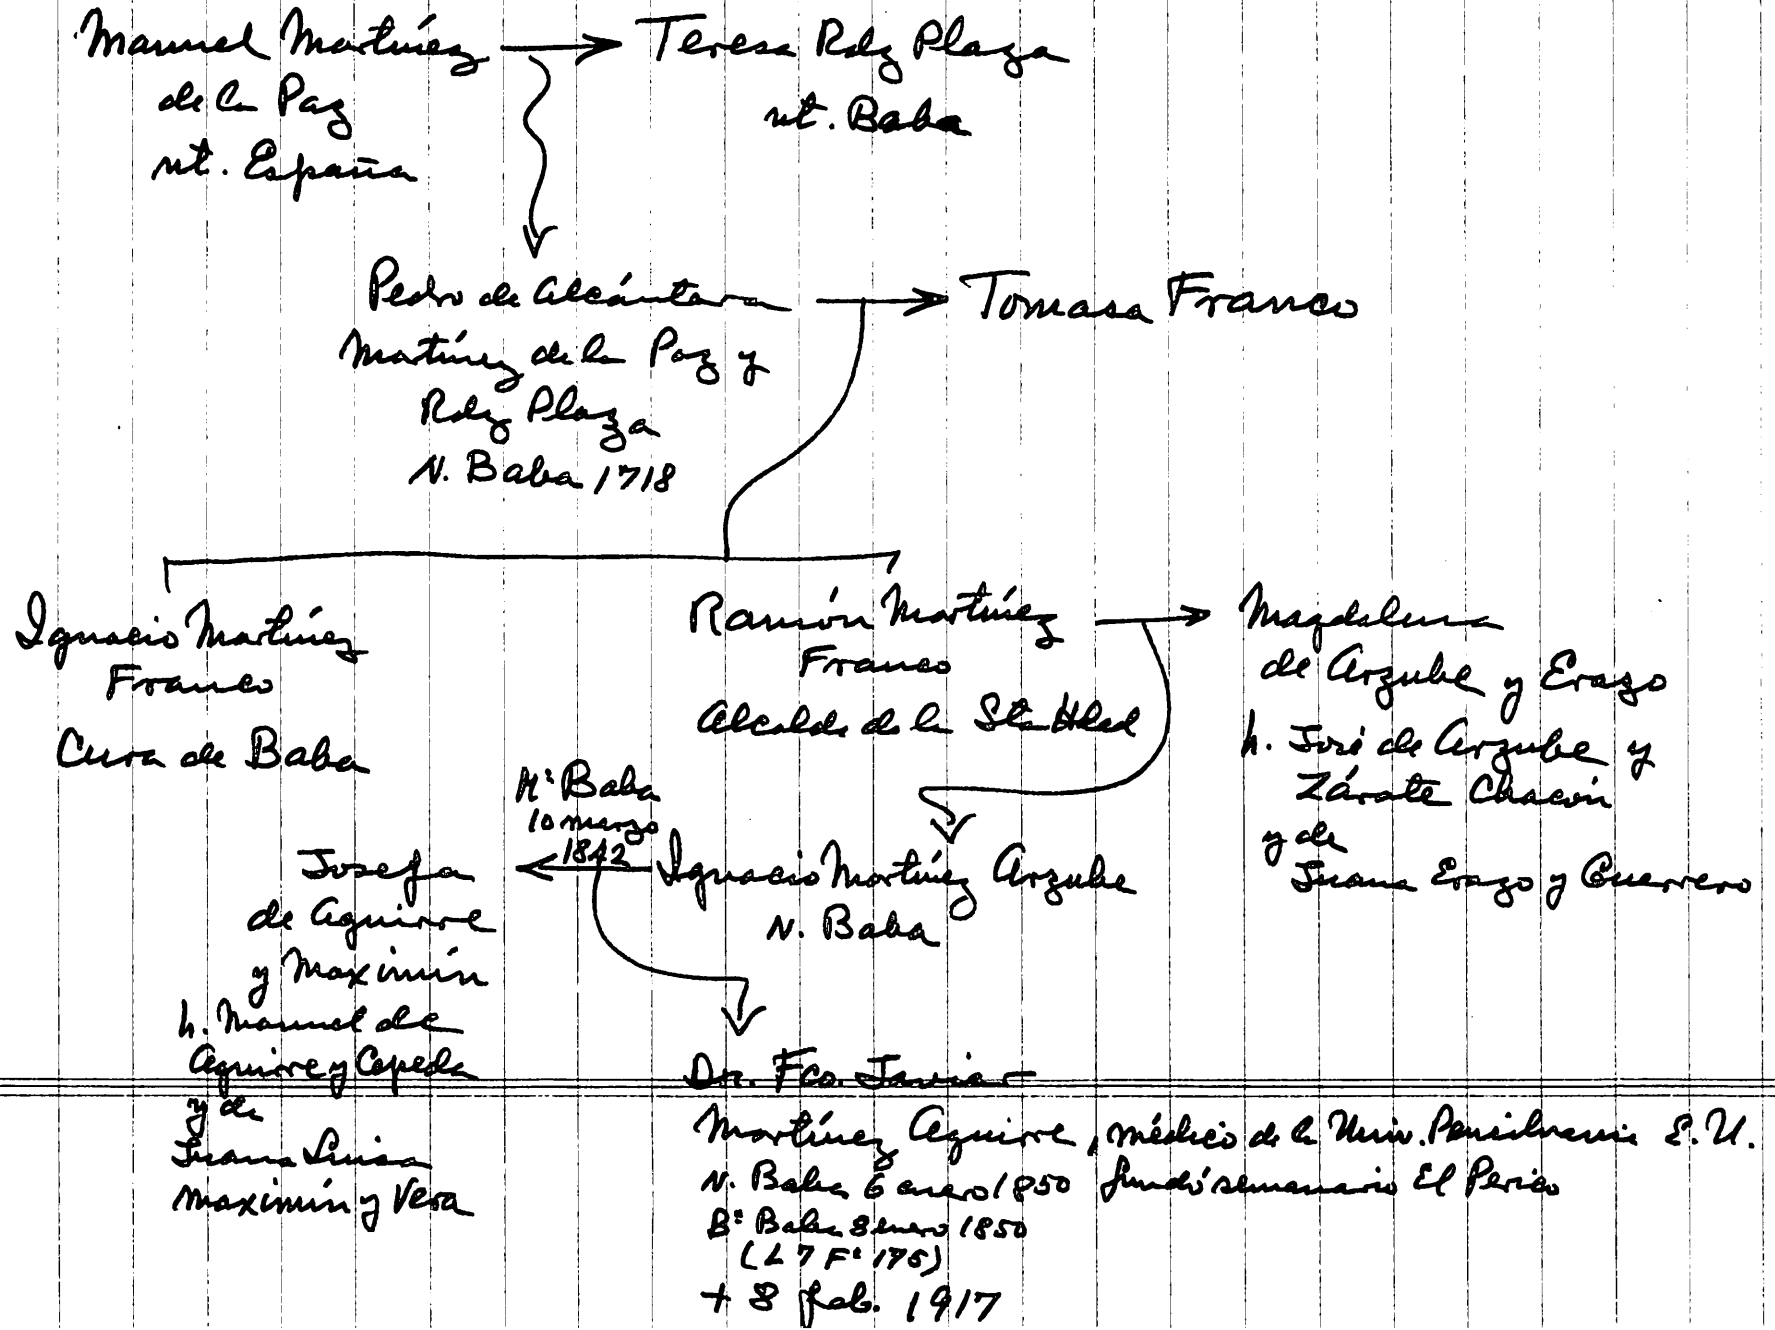 Manuel Martínez
de la Paz
nt. España
Teresa Rdz Plaza
nt. Baba
Pedro de Alcántara
Martínez de la Paz y
Rdz Plaza
N. Baba 1718
Tomasa Franco
Ignacio Martínez
Franco
Cura de Baba
Ramón Martínez
Franco
Alcalde de la Sta Hdad
Magdalena
de Arzube y Erazo
h. José de Arzube y
Zárate Chacón
y de
Juana Erazo y Guerrero
Mº Baba
10 marzo
1842
Josefa
de Aguirre
y Maximín
h. Manuel de
Aguirre y Cepeda
y de
Juana Luisa
Maximín y Vera
Ignacio Martínez Arzube
N. Baba
Dr. Fco. Javier
Martínez Aguirre, médico de la Univ. Pensilvania E.U.
N. Baba 6 enero 1850 fundó semanario El Perico
Bº Baba 8 enero 1850
(L 7 Fº 175)
+ 8 feb. 1917